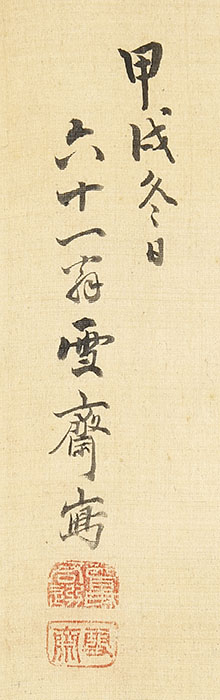 甲戌冬日
六十一翁雪齋寫
雪齋